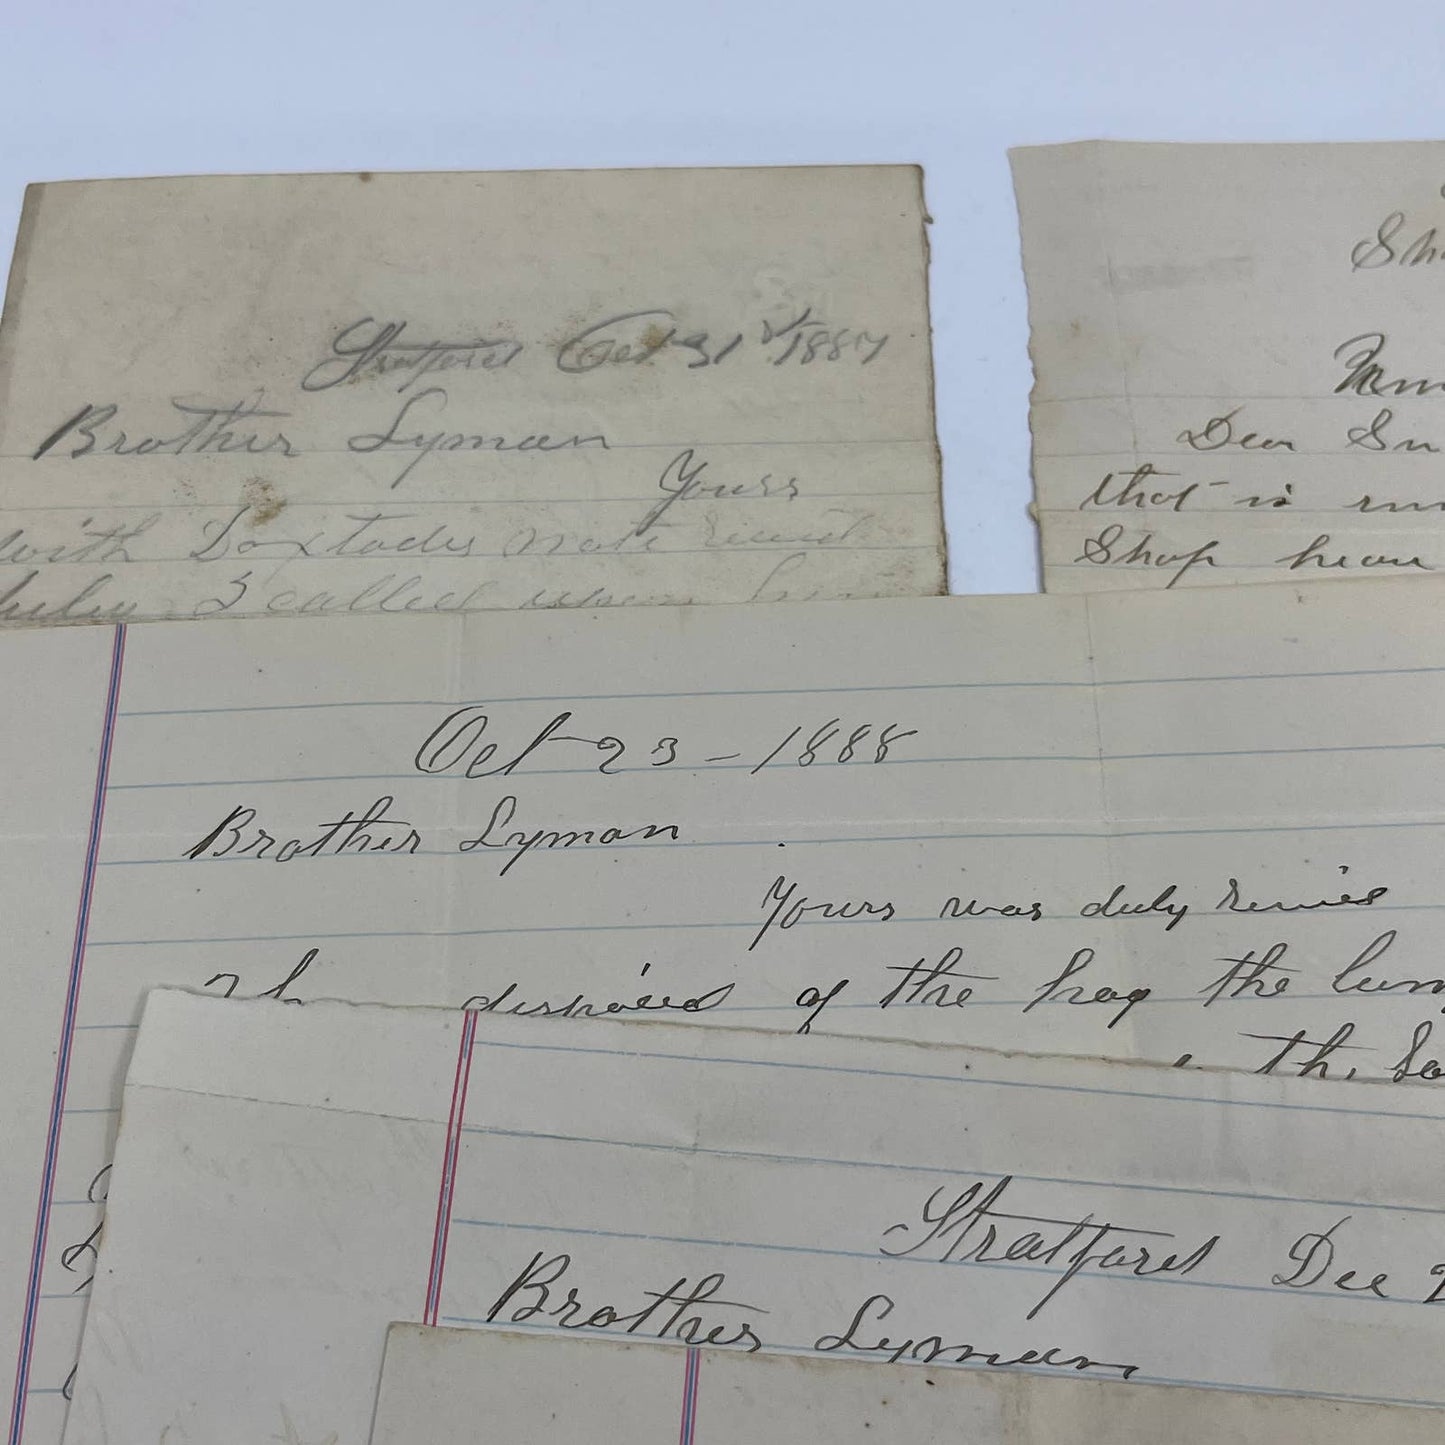 Stratford Oct 31st/1887
Brother Lyman
Yours
with note
I called upon
Sh
Dear Sir
that is
Shop
Oct 23 - 1888
Brother Lyman
Yours was duly
disposed of the hay the
the
Stratford Dec 2
Brother Lyman